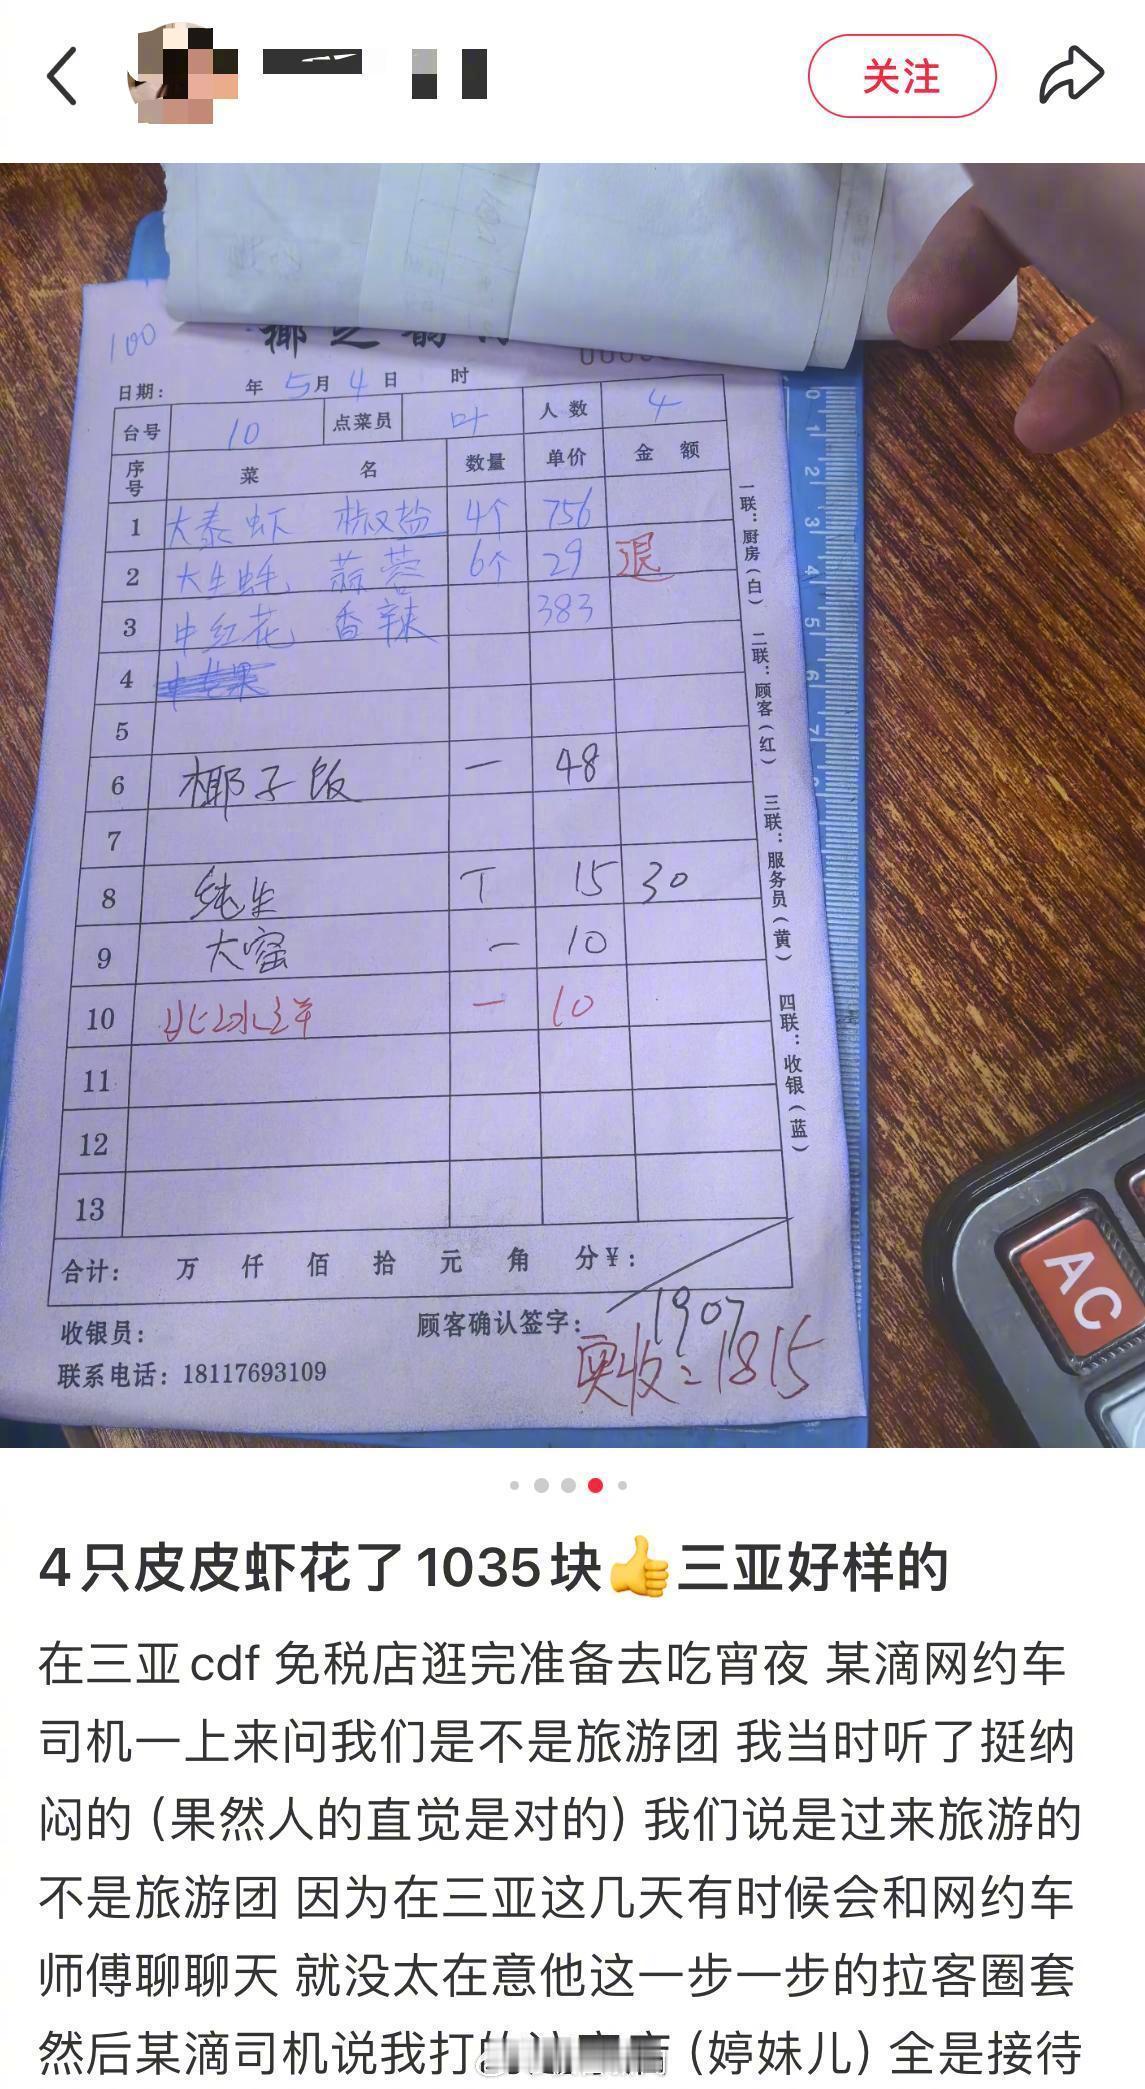 关注
100
日期： 年 5月 4日 时
台号 10 点菜员 叶 人数 4
序号 菜 名 数量 单价 金 额
1 大泰虾 椒盐 4个 756
2 大生蚝 蒜蓉 6个 29 退
3 中红花 香辣 383
4
5
6 椰子饭 一 48
7
8 纯生 T 15 30
9 大窑 一 10
10 北冰洋 一 10
11
12
13
一联：厨房（白） 二联：顾客（红） 三联：服务员（黄） 四联：收银（蓝）
合计： 万 仟 佰 拾 元 角 分￥：
收银员： 顾客确认签字： 1907
联系电话：18117693109 实收：1815
0 1 2 3 4 5 6 7
AC
4只皮皮虾花了1035块👍三亚好样的
在三亚cdf 免税店逛完准备去吃宵夜 某滴网约车
司机一上来问我们是不是旅游团 我当时听了挺纳
闷的（果然人的直觉是对的）我们说是过来旅游的
不是旅游团 因为在三亚这几天有时候会和网约车
师傅聊聊天 就没太在意他这一步一步的拉客圈套
然后某滴司机说我打的（婷妹儿）全是接待